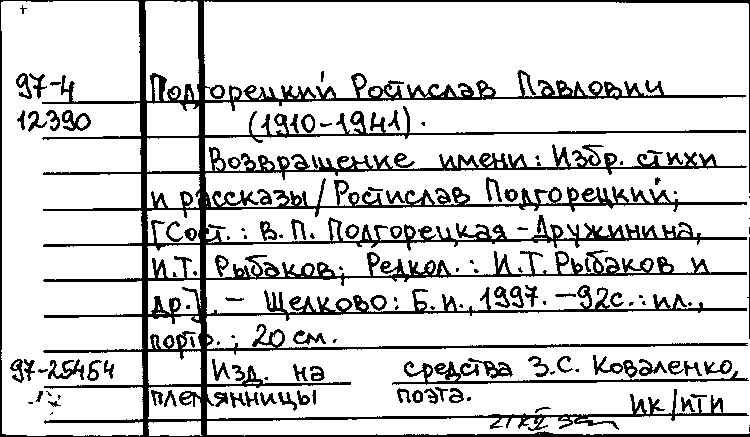 97-4 Подгорецкий Ростислав Павлович
12390 (1910-1941).
Возвращение имени: Избр. стихи
и рассказы/Ростислав Подгорецкий;
[Сост.: В.П. Подгорецкая-Дружинина,
И.Т. Рыбаков; Редкол.: И.Т. Рыбаков и
др.]. — Щелково: Б.и., 1997. — 92с.: ил.,
портр.; 20 см.
97-25454 Изд. на средства З.С. Коваленко,
племянницы поэта.
ИК/ИТИ